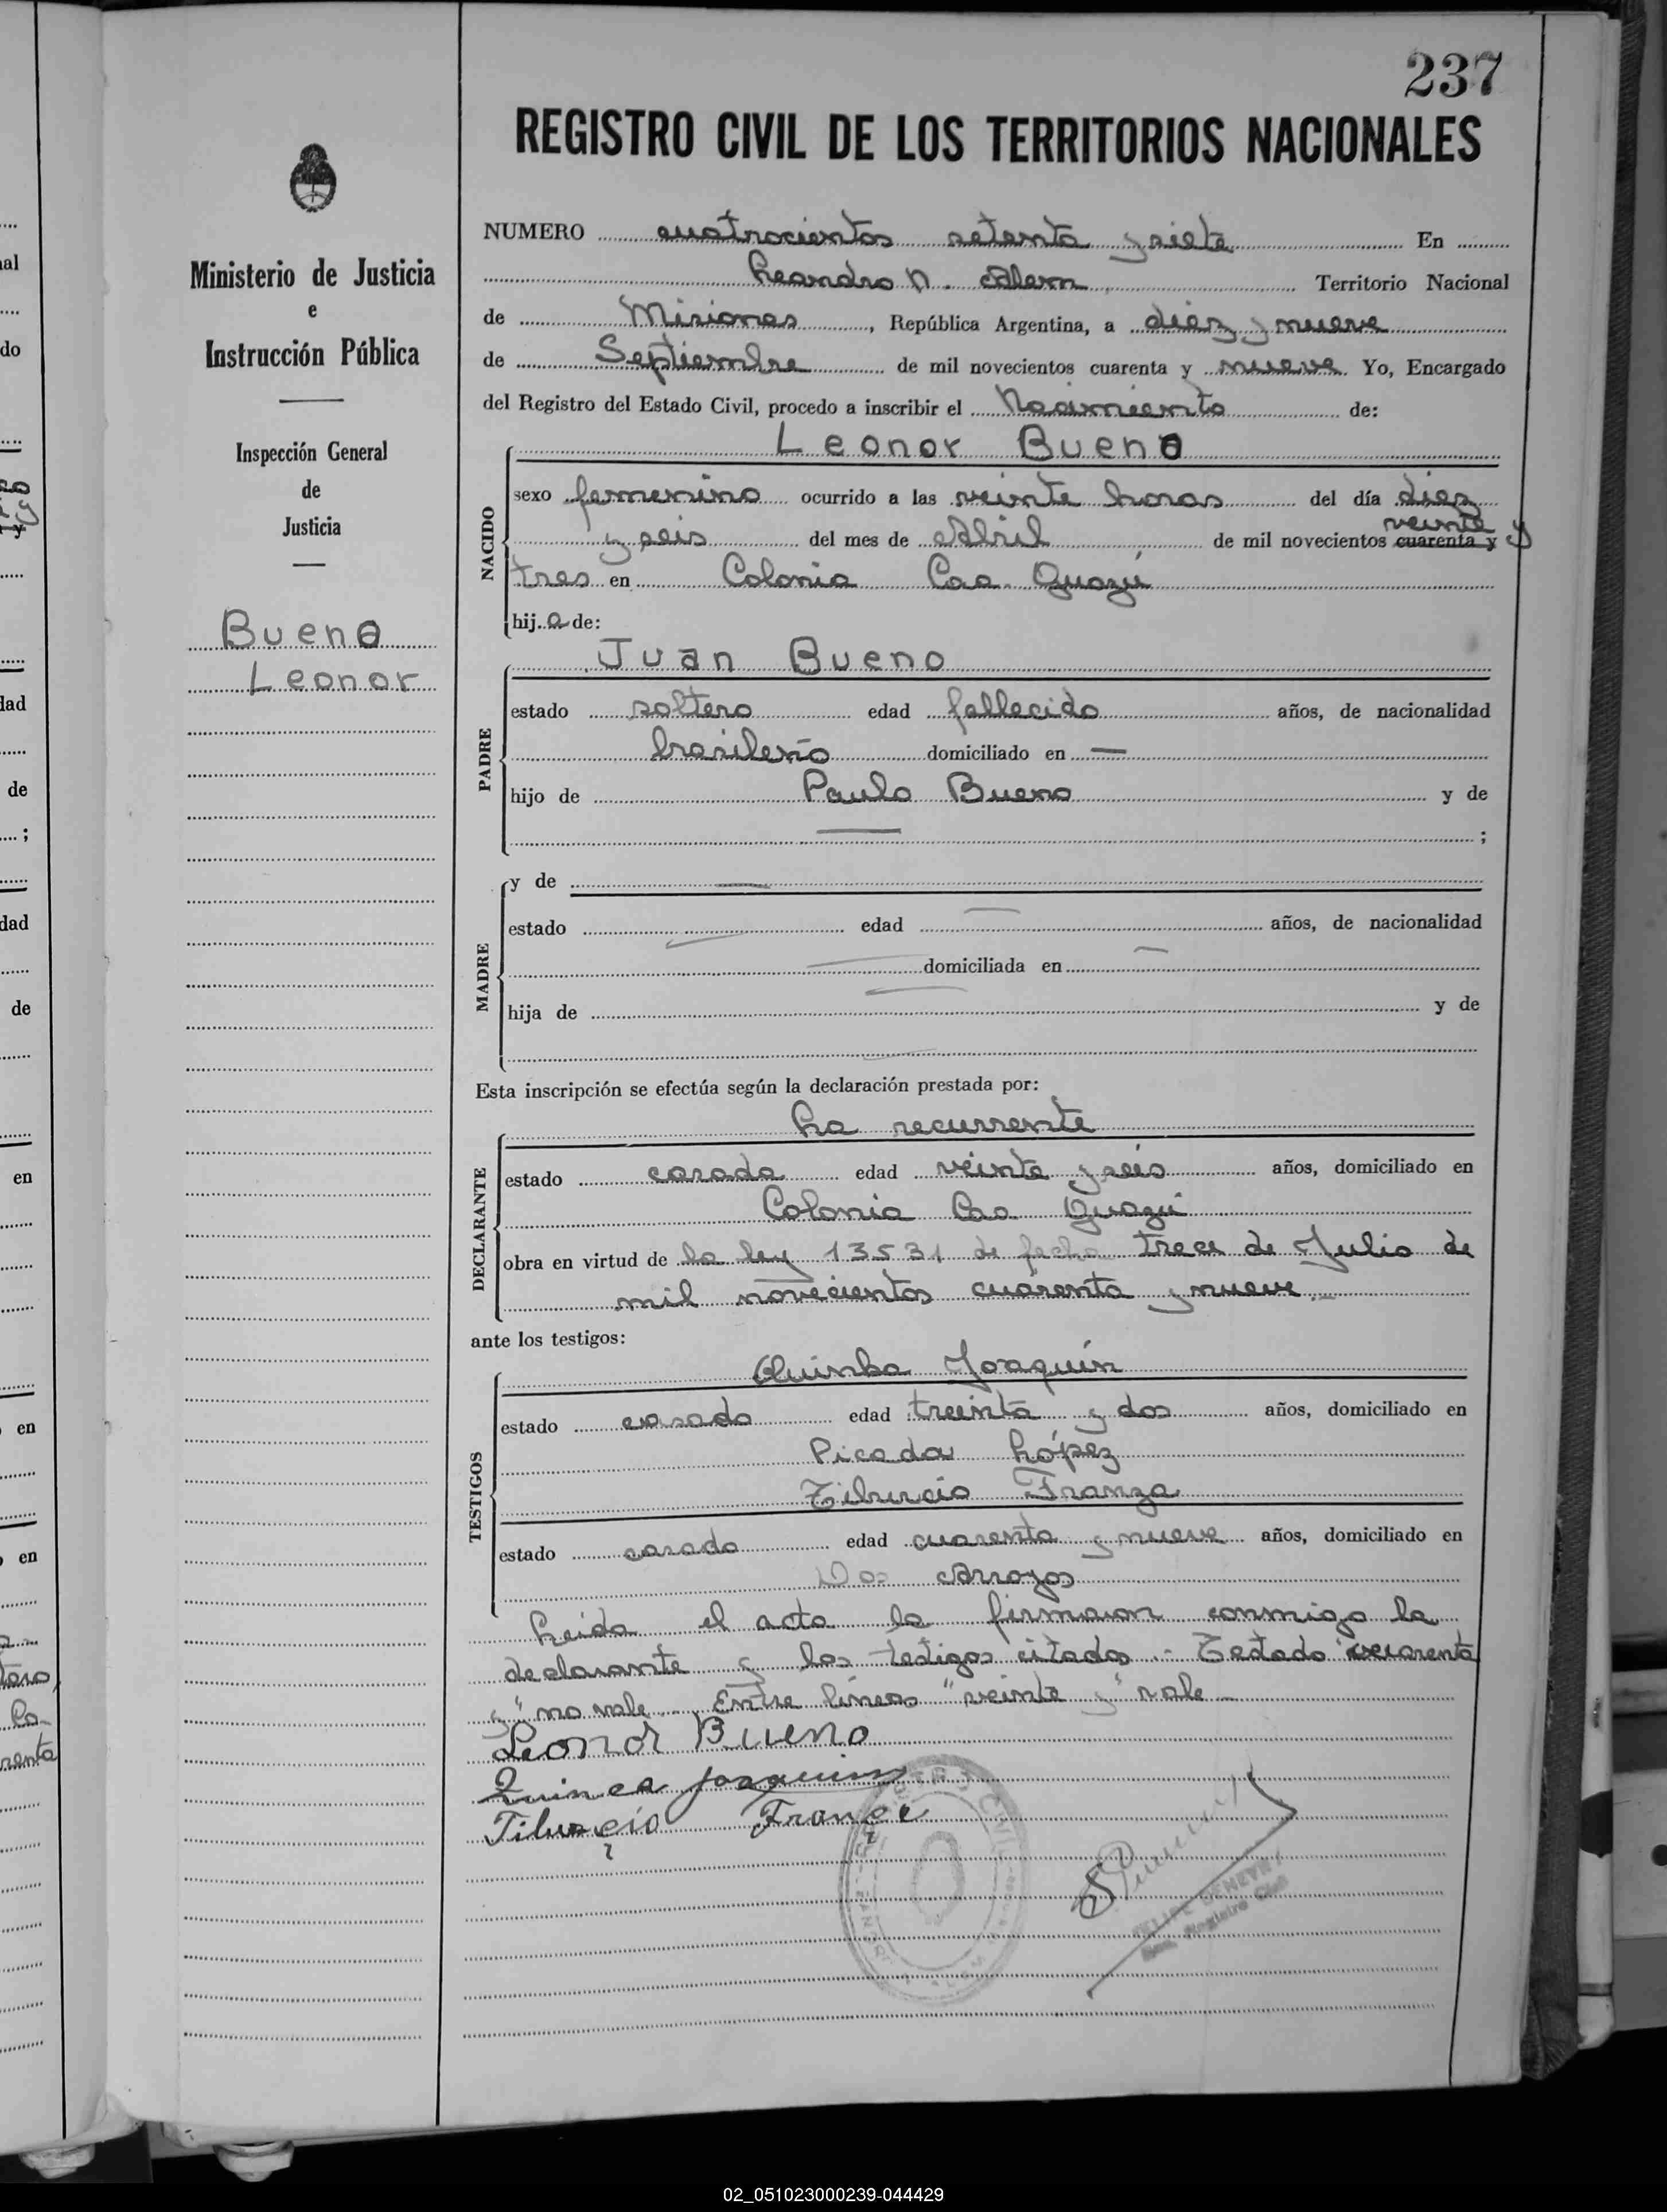 237
REGISTRO CIVIL DE LOS TERRITORIOS NACIONALES
Ministerio de Justicia
e
Instrucción Pública
Inspección General
de
Justicia
Bueno
Leonor
NUMERO cuatrocientos setenta y siete En
Leandro N. Alem Territorio Nacional
de Misiones, República Argentina, a diez y nueve
de Septiembre de mil novecientos cuarenta y nueve. Yo, Encargado
del Registro del Estado Civil, procedo a inscribir el Nacimiento de:
Leonor Bueno
NACIDO
sexo femenino ocurrido a las veinte horas del día diez
veinte y
y seis del mes de Abril de mil novecientos cuarenta y
tres en Colonia Caa-Guazú
hij.a de:
PADRE
Juan Bueno
estado soltero edad fallecido años, de nacionalidad
brasileño domiciliado en —
hijo de Paulo Bueno y de
— ;
MADRE
y de —
estado — edad — años, de nacionalidad
— domiciliada en —
hija de — y de
—
Esta inscripción se efectúa según la declaración prestada por:
DECLARANTE
La recurrente
estado casada edad veinte y seis años, domiciliado en
Colonia Caa Guazú
obra en virtud de la ley 13531 de fecha trece de Julio de
mil novecientos cuarenta y nueve.—
ante los testigos:
TESTIGOS
Quinba Joaquín
estado casado edad treinta y dos años, domiciliado en
Picada López
Tiburcio Franza
estado casado edad cuarenta y nueve años, domiciliado en
Dos Arroyos
Leida el acta la firmaron conmigo la
declarante y los testigos citados.- Testado "cuarenta
y" no vale. Entre lineas "veinte y" vale
Leonor Bueno
Joaquin
Tiburcio
Registro Civil
02_051023000239-044429